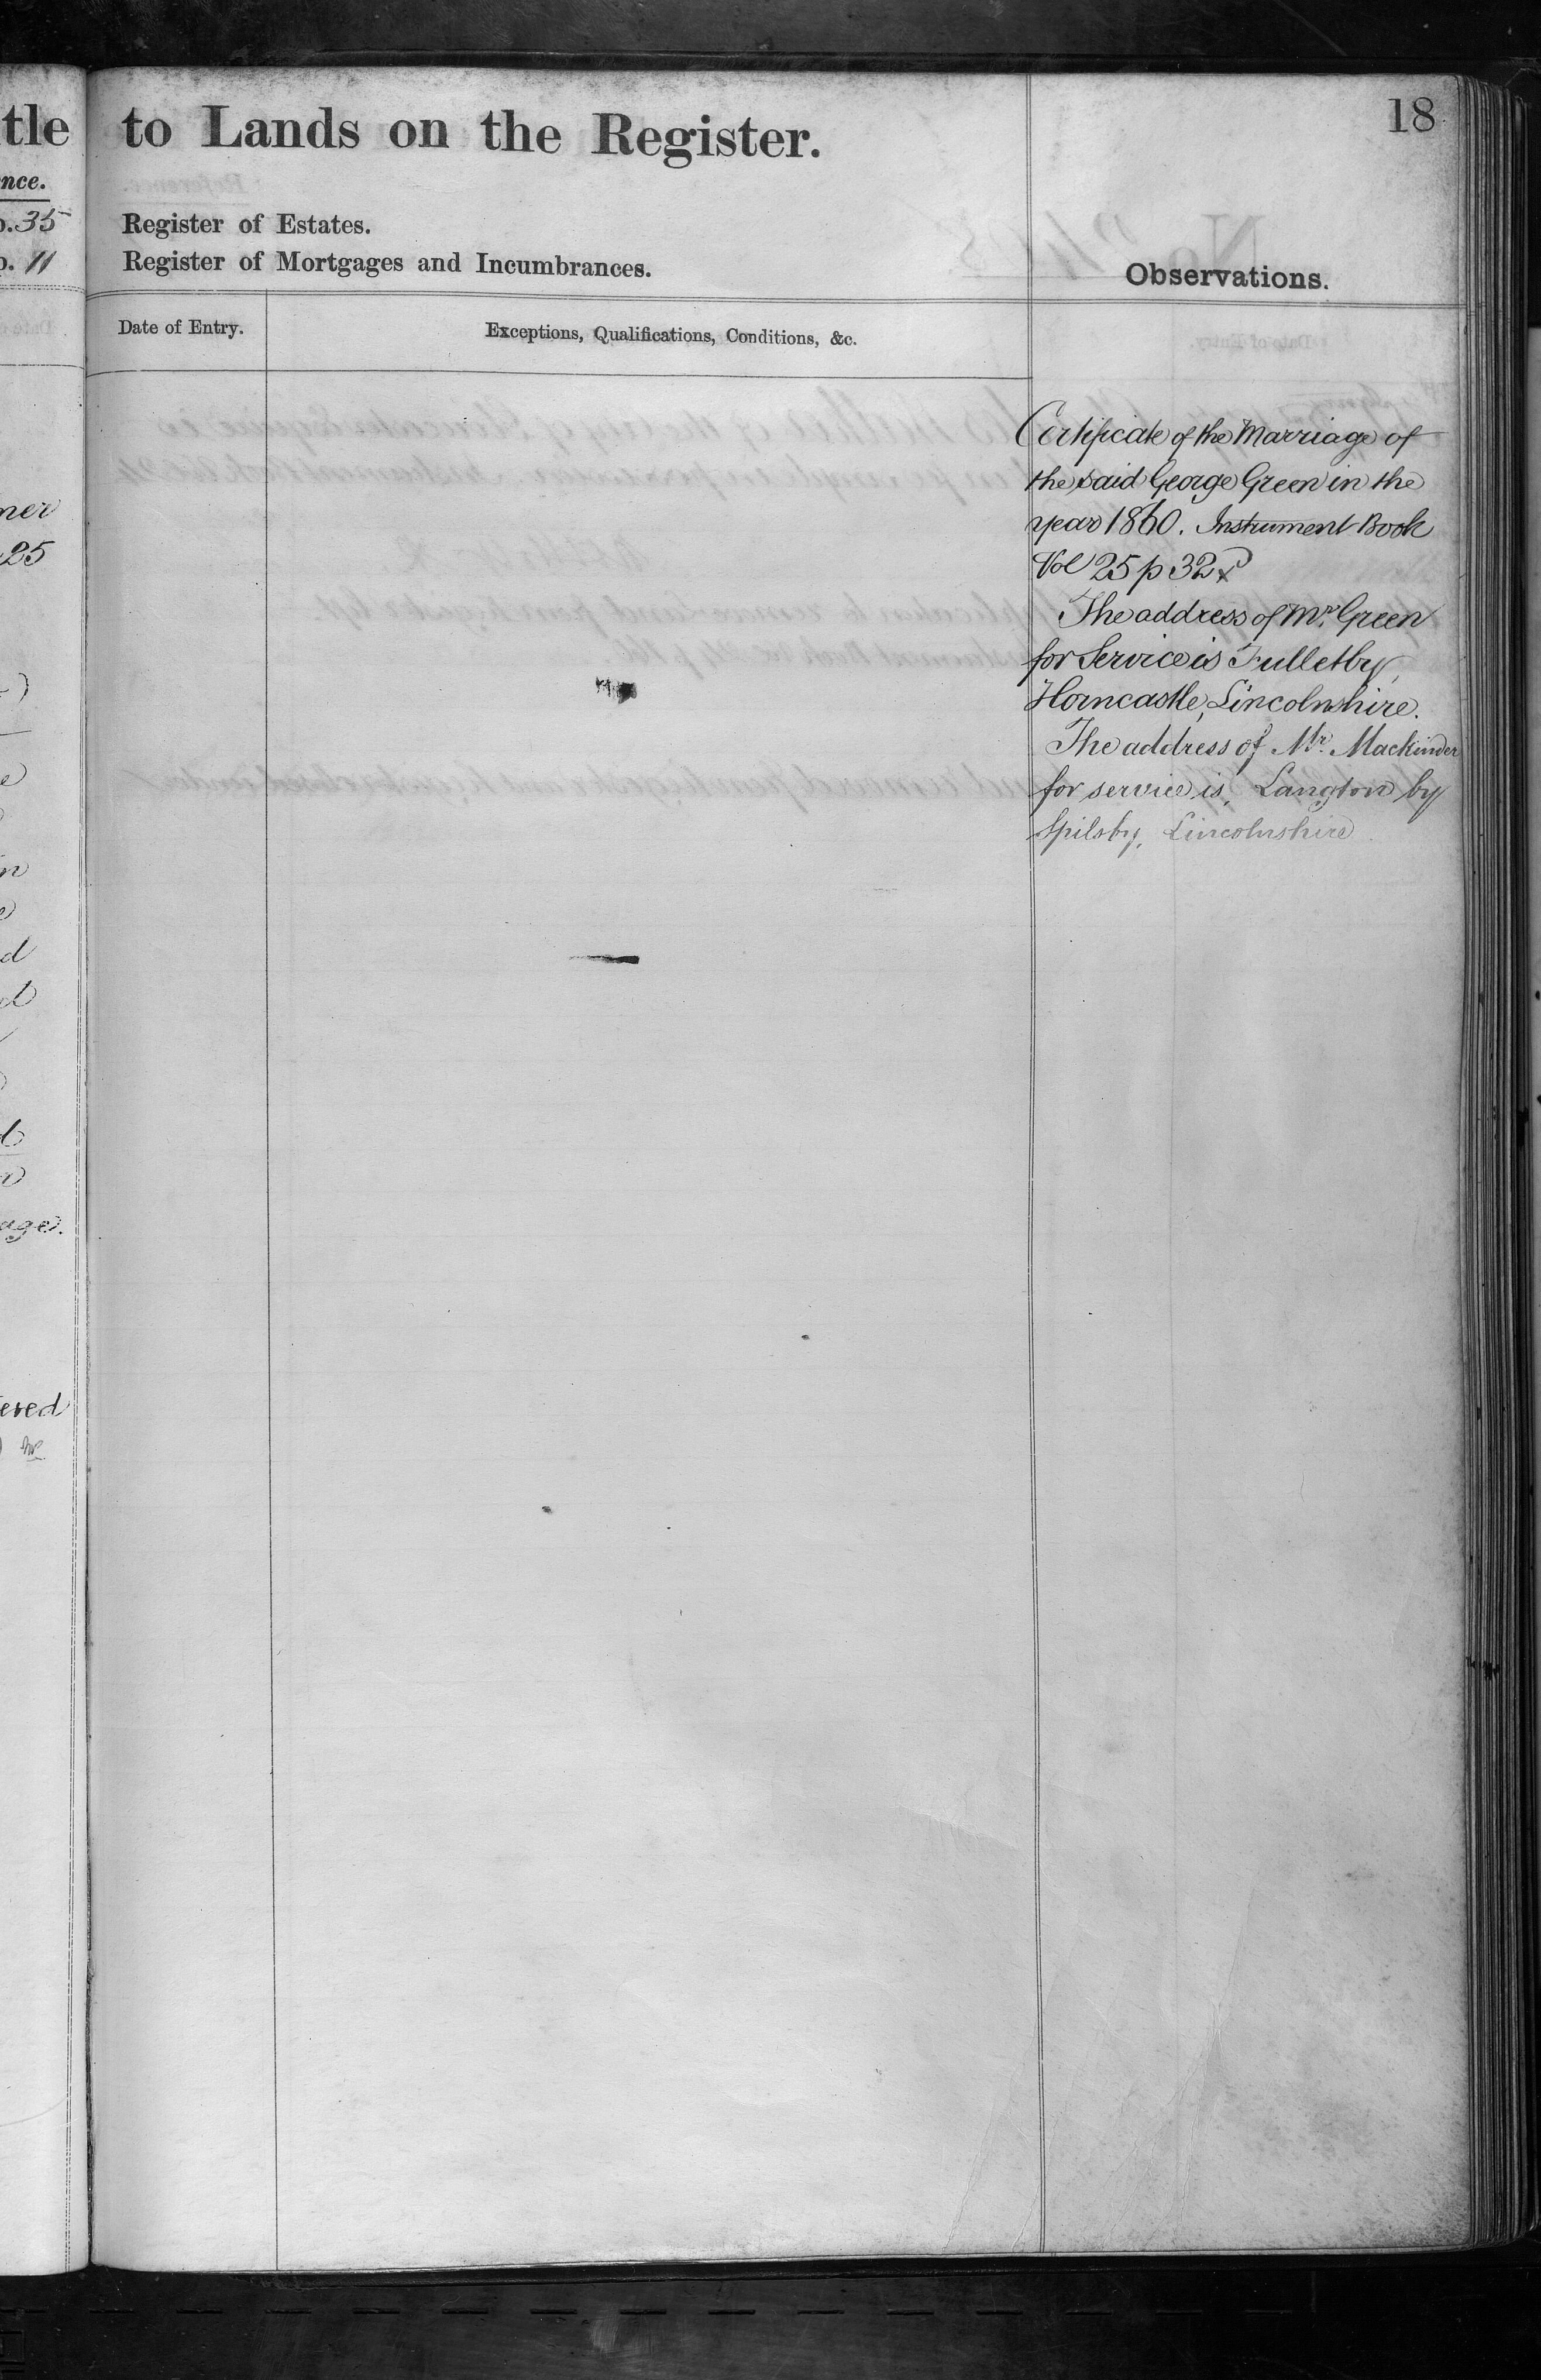 tle to Lands on the Register.
18
nce.
p. 35
Register of Estates.
p. 11
Register of Mortgages and Incumbrances.
Observations.
Date of Entry.
Exceptions, Qualifications, Conditions, &c.
Certificate of the Marriage of
the said George Green in the
year 1860. Instrument Book
Vol 25 p 32
The address of Mr. Green
for Service is Fulletby,
Horncastle, Lincolnshire.
The address of Mr. Mackinder
for service is, Langton by
Spilsby, Lincolnshire.
ner
25
age.
ered